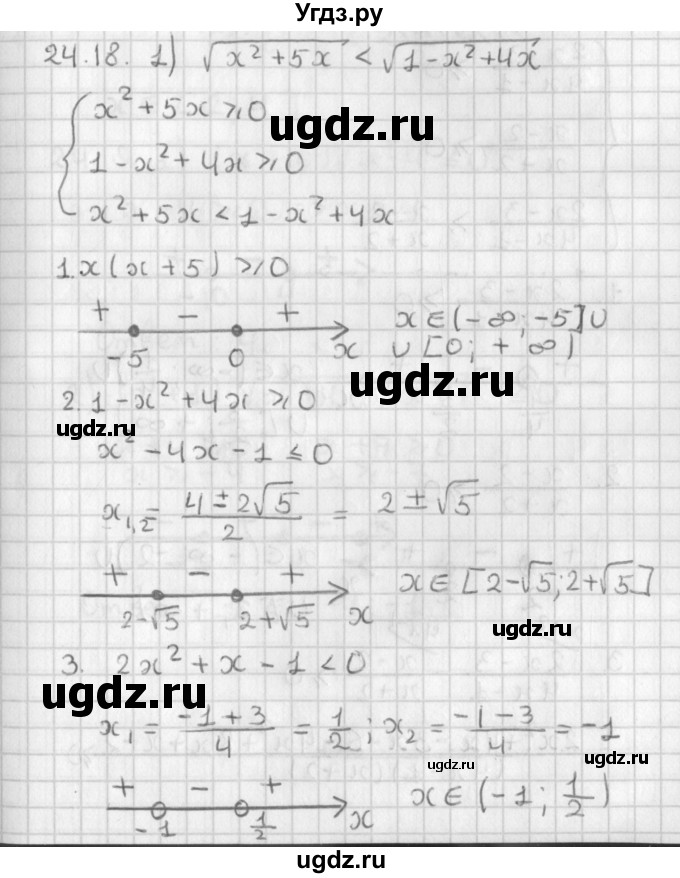 Угдз.ру
24.18. 1) √(x² + 5x) < √(1 - x² + 4x)
x² + 5x ⩾ 0
ugdz.ru
1 - x² + 4x ⩾ 0
ugdz.ru
x² + 5x < 1 - x² + 4x
1. x(x + 5) ⩾ 0
+ - +
-5 0 x
x ∈ (-∞; -5] ∪
∪ [0; +∞)
ugdz.ru
2. 1 - x² + 4x ⩾ 0
ugdz.ru
x² - 4x - 1 ≤ 0
x₁,₂ = (4 ± 2√5)/2 = 2 ± √5
+ - +
2-√5 2+√5 x
x ∈ [2-√5; 2+√5]
ugdz.ru
3. 2x² + x - 1 < 0
ugdz.ru
x₁ = (-1 + 3)/4 = 1/2; x₂ = (-1 - 3)/4 = -1
ugdz.ru
ugdz.ru
+ - +
-1 1/2 x
x ∈ (-1; 1/2)
ugdz.ru